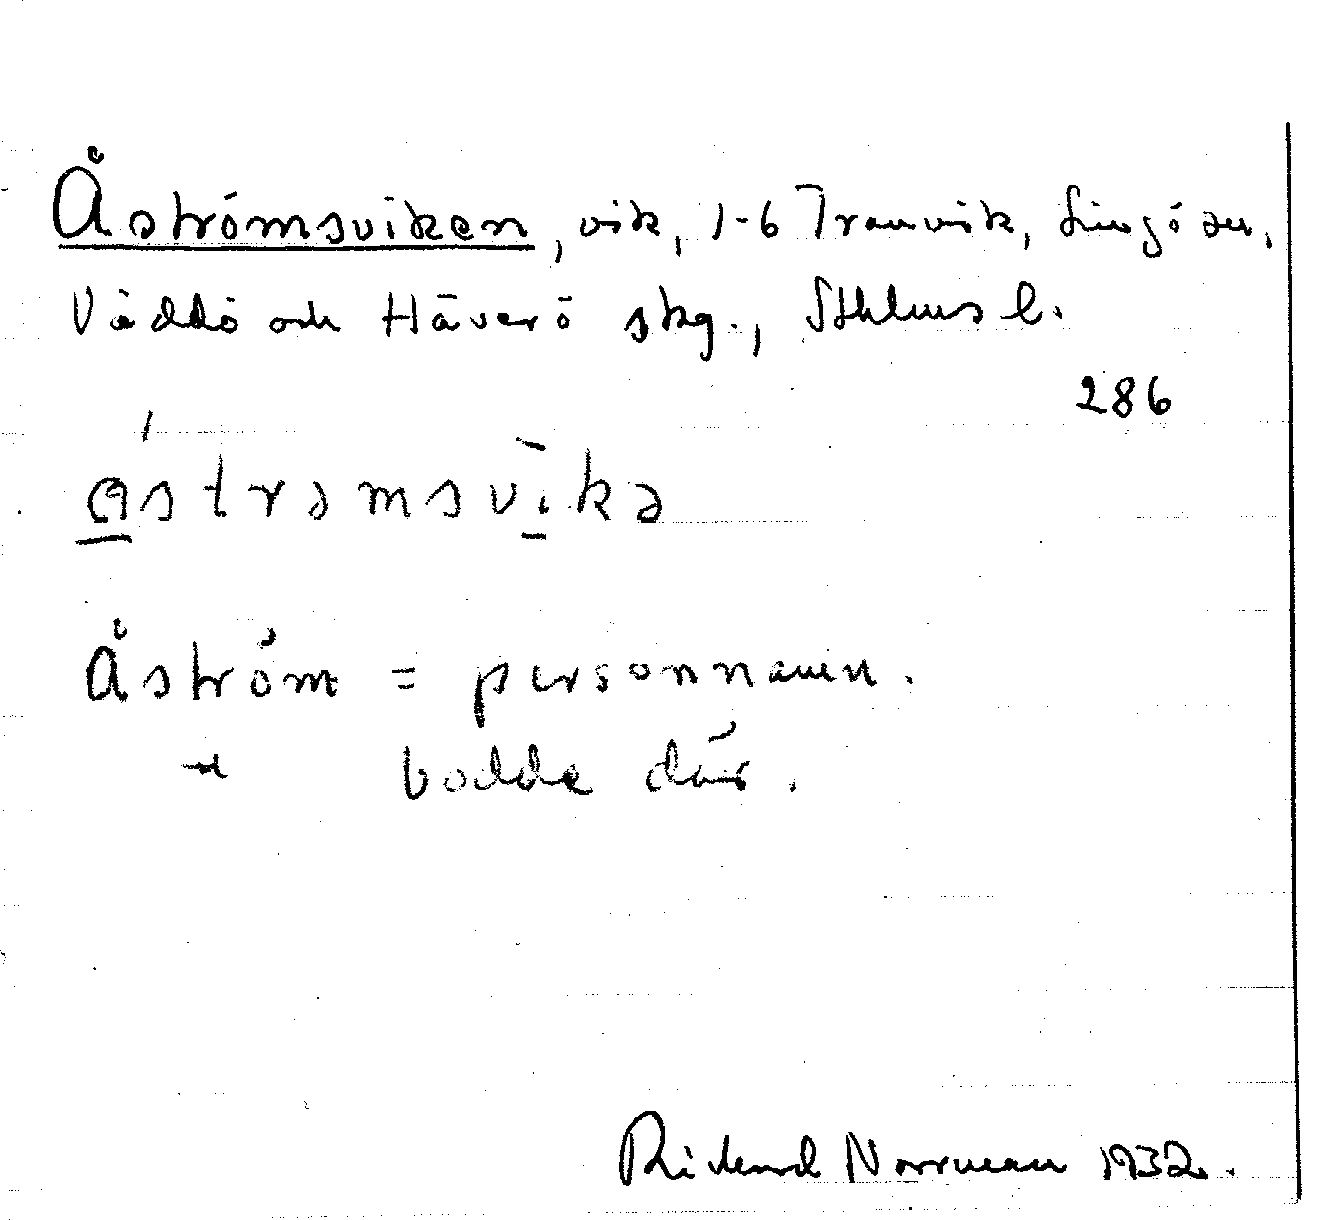 Åströmsviken, vik, 1-6 Tranvik, Singö sn,
Väddö och Häverö skg., Sthlms l.
286
åstrəmsvikə
Åström = personnamn.
bodde där.
Richard Norrman 1932.